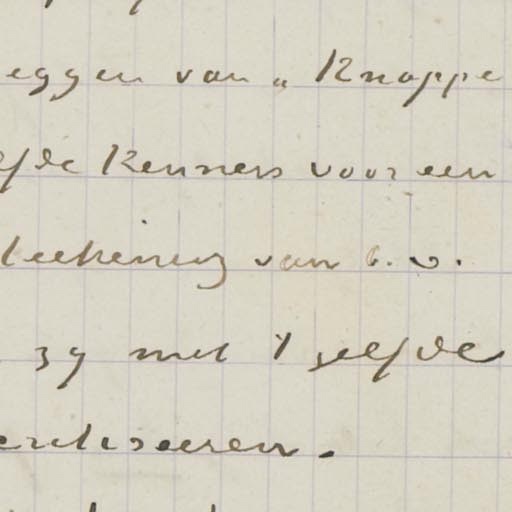 eggen van „ Knappe
lfde Kenners voor een
teekening van b.v.
zy met 't zelfde
critiseeren.